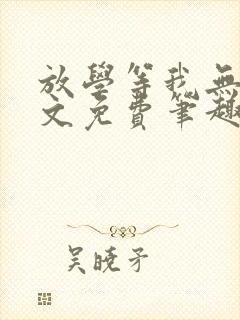 放學等我無
文免費筆趣
吴曉矛